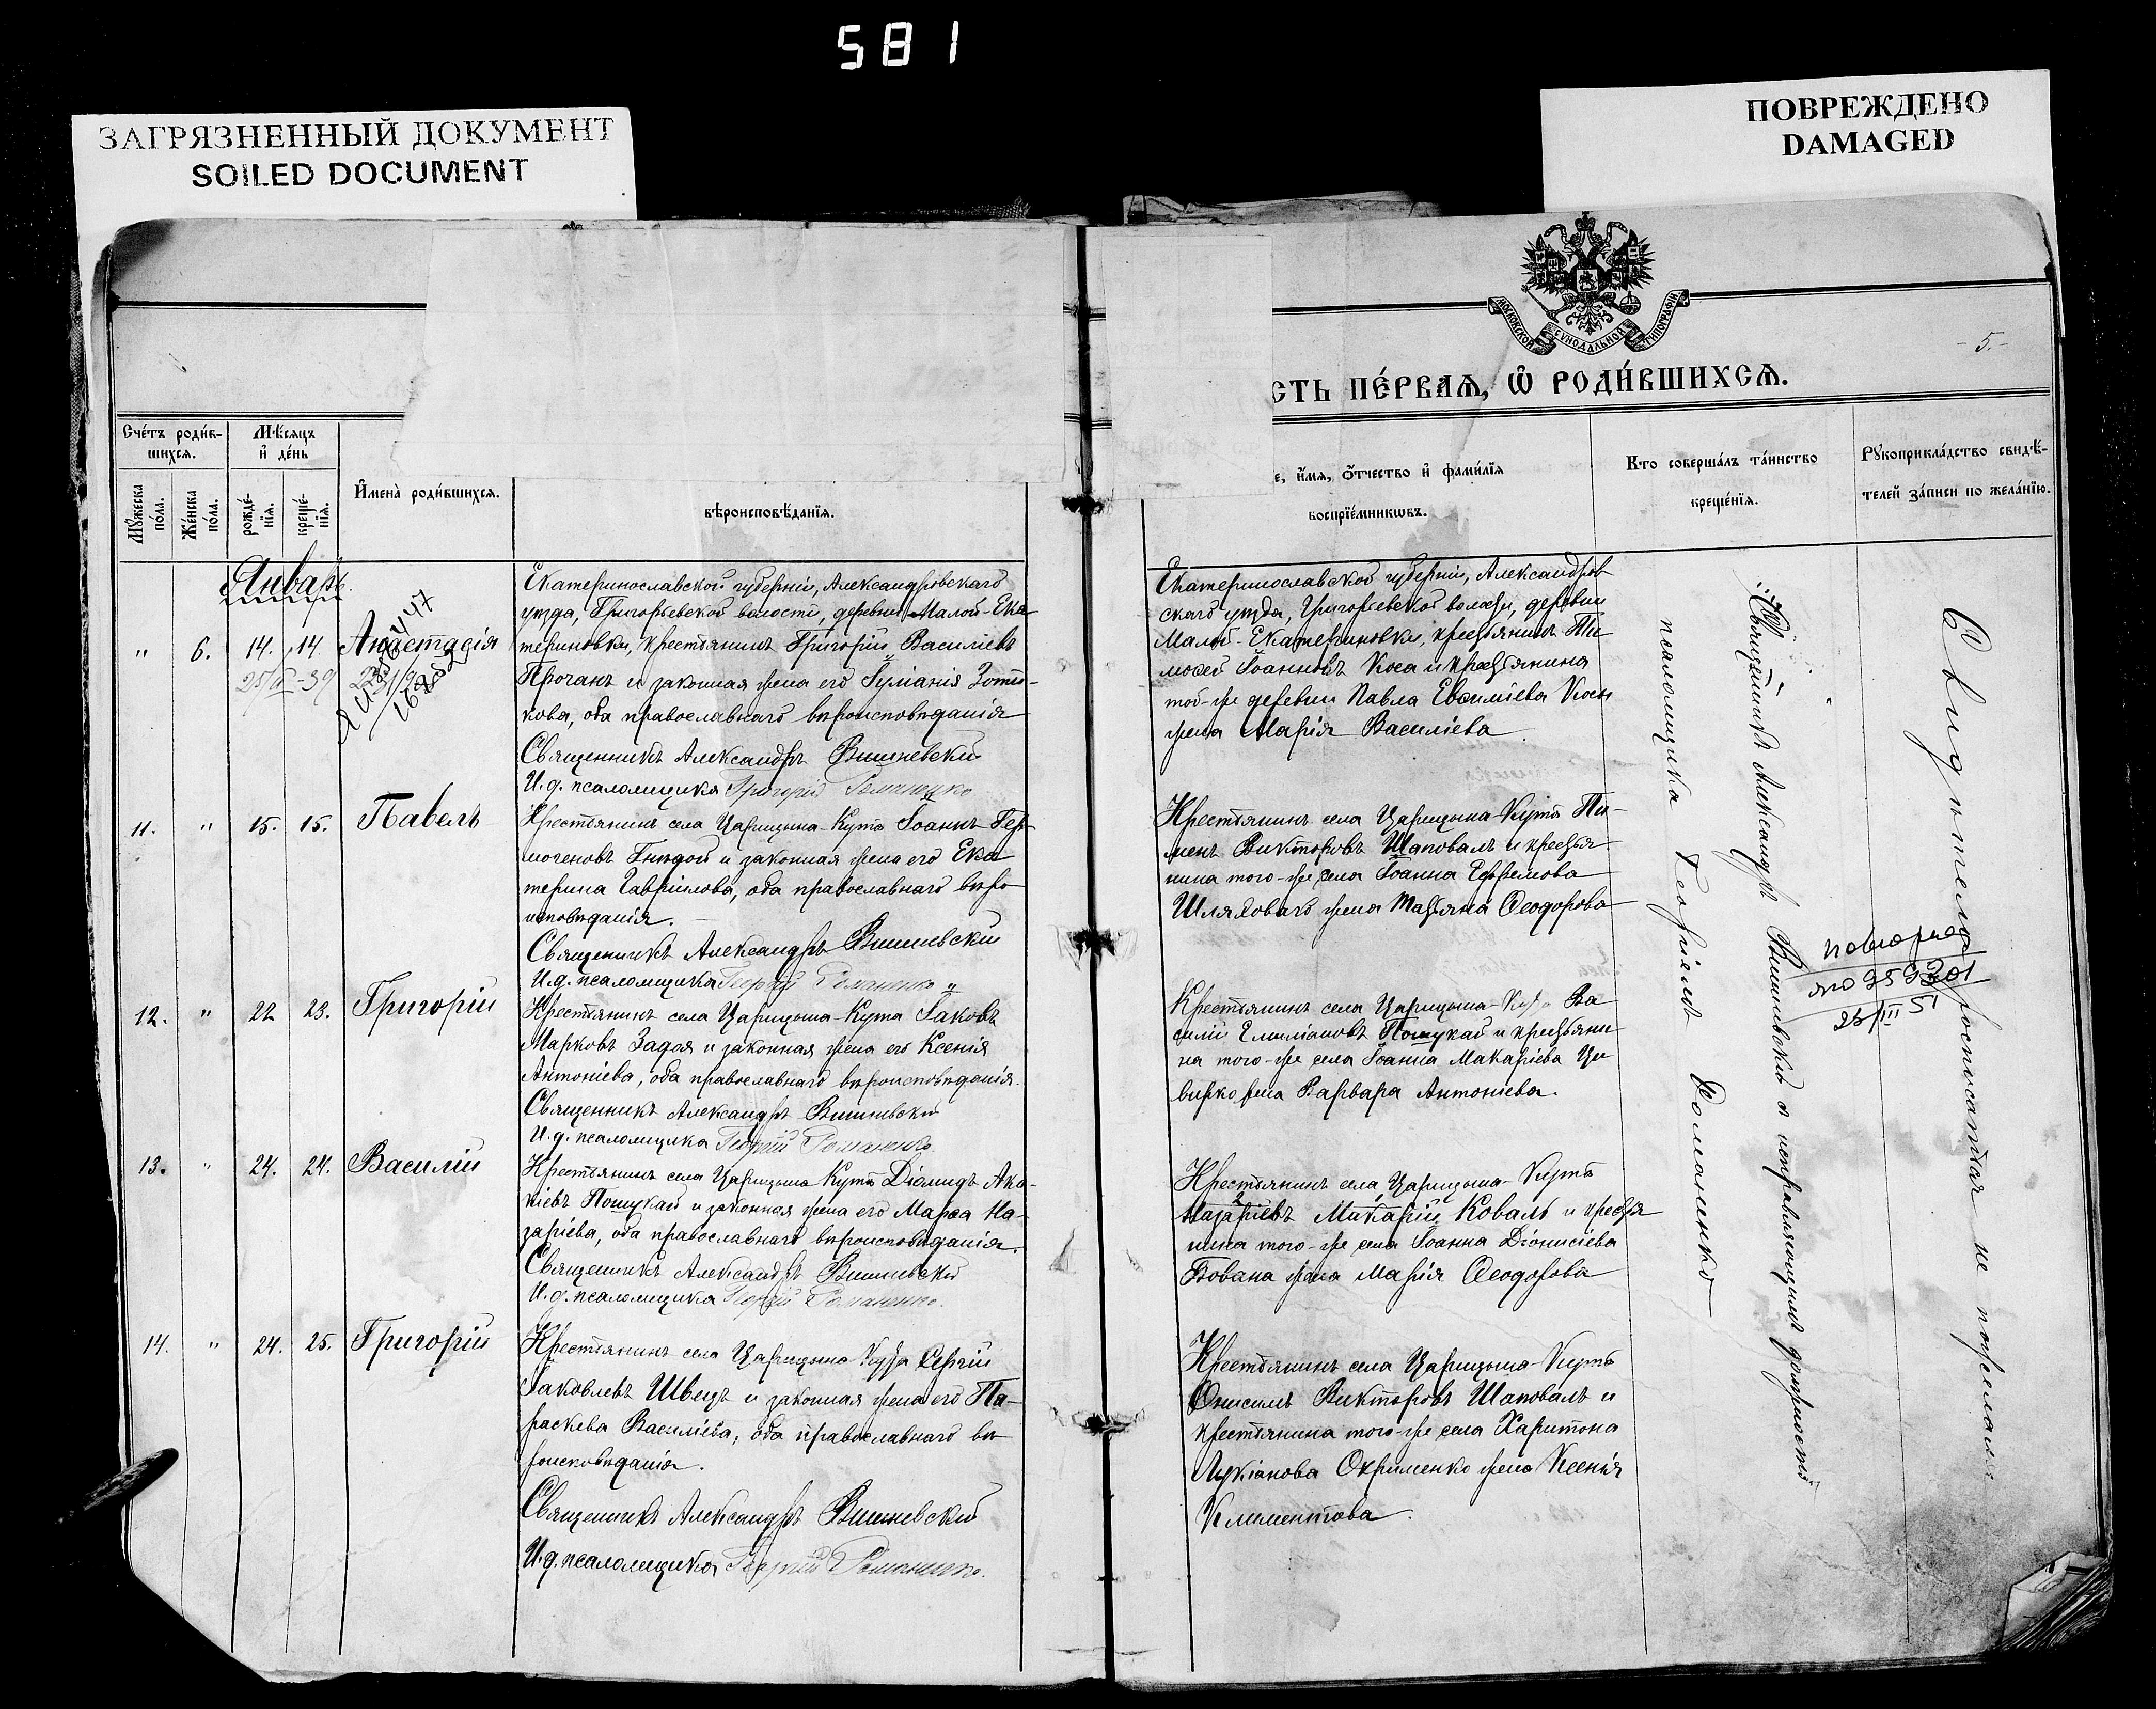 581
ЗАГРЯЗНЕННЫЙ ДОКУМЕНТ
SOILED DOCUMENT
ПОВРЕЖДЕНО
DAMAGED
МОСКОВСКОЙ СѴНОДАЛЬНОЙ ТИПОГРАФІИ
-5.-
СТЬ ПЕ́РВАѦ, Ѿ РОДИ́ВШИХСѦ.
Сче́тъ роди́в-
шихсѧ.
Мꙋ́жеска по́ла.
Же́нска по́ла.
Мѣ́сѧцъ
и҆ де́нь
рожде́-
нїѧ.
креще́-
нїѧ.
И҆мена̀ роди́вшихсѧ.
вѣроисповѣ́данїѧ.
е, и҆́мѧ, ѻ҆́тчество и҆ фами́лїѧ
воспрїе́мникѡвъ.
Кто соверша́лъ та́инство
креще́нїѧ.
Рꙋкоприкла́дство свидѣ́-
телей за́писи по жела́нїю.
Январь.
" 6. 14. 14. Анастасія
25/IX-39
Екатеринославской губерніи, Александровскаго
уѣзда, Григорьевской волости, деревни Малой-Ека-
териновки, крестьянинъ Григорій Василіевъ
Прочанъ и законная жена его Іуліанія Зоти-
кова, оба православнаго вѣроисповѣданія
Священникъ Александръ Вишневскій
И.д. псаломщика Георгій Романенко
Екатеринославской губерніи, Александров
скаго уѣзда, Григорьевской волости, деревни
Малой-Екатериновки, крестьянинъ Ти
моѳей Іоанновъ Коса и крестьянина
той-же деревни Павла Евѳиміева Косы
жена Марія Василіева
11. " 15. 15. Павелъ
Крестьянинъ села Царицына-Кута Іоаннъ Гер-
могеновъ Гнѣдой и законная жена его Ека
терина Гавріилова, оба православнаго вѣро
исповѣданія.
Священникъ Александръ Вишневскій
И.д. псаломщика Георгій Романенко
Крестьянинъ села Царицына-Кута Пи-
менъ Викторовъ Шаповалъ и крестья
нина того-же села Іоанна Ефремова
Шляховаго жена Татьяна Ѳеодорова
12. " 22 23. Григорій
Крестьянинъ села Царицына-Кута Іаковъ
Марковъ Задоя и законная жена его Ксенія
Антоніева, оба православнаго вѣроисповѣданія.
Священникъ Александръ Вишневскій
И.д. псаломщика Георгій Романенко
Крестьянинъ села Царицына-Кута Ва
силій Емиліановъ Пошукай и крестьяни
на того-же села Іоанна Макаріева Ци
вирко жена Варвара Антоніева.
13. " 24. 24. Василій
Крестьянинъ села Царицына Кута Діомидъ Ака-
кіевъ Пошукай и законная жена его Марѳа На-
заріева, оба православнаго вѣроисповѣданія.
Священникъ Александръ Вишневскій
И.д. псаломщика Георгій Романенко.
Крестьянинъ села Царицына-Кута
Назаріевъ Макарій Коваль и крестья
нина того-же села Іоанна Діонисіева
Бована жена Марія Ѳеодорова
14. " 24. 25. Григорій
Крестьянинъ села Царицына Кута Сергій
Іаковлевъ Швецъ и законная жена его Па-
раскева Василіева, оба православнаго вѣ
роисповѣданія.
Священникъ Александръ Вишневскій
И.д. псаломщика Георгій Романенко.
Крестьянинъ села Царицына-Кута
Онисимъ Викторовъ Шаповалъ и
крестьянина того-же села Харитона
Лукіанова Охрименко жена Ксенія
Климентова.
Священникъ Александръ Вишневскій съ исправляющимъ должность
псаломщика Георгіемъ Романенко
Свидѣтели росписаться не пожелали
повторное
25/III 51